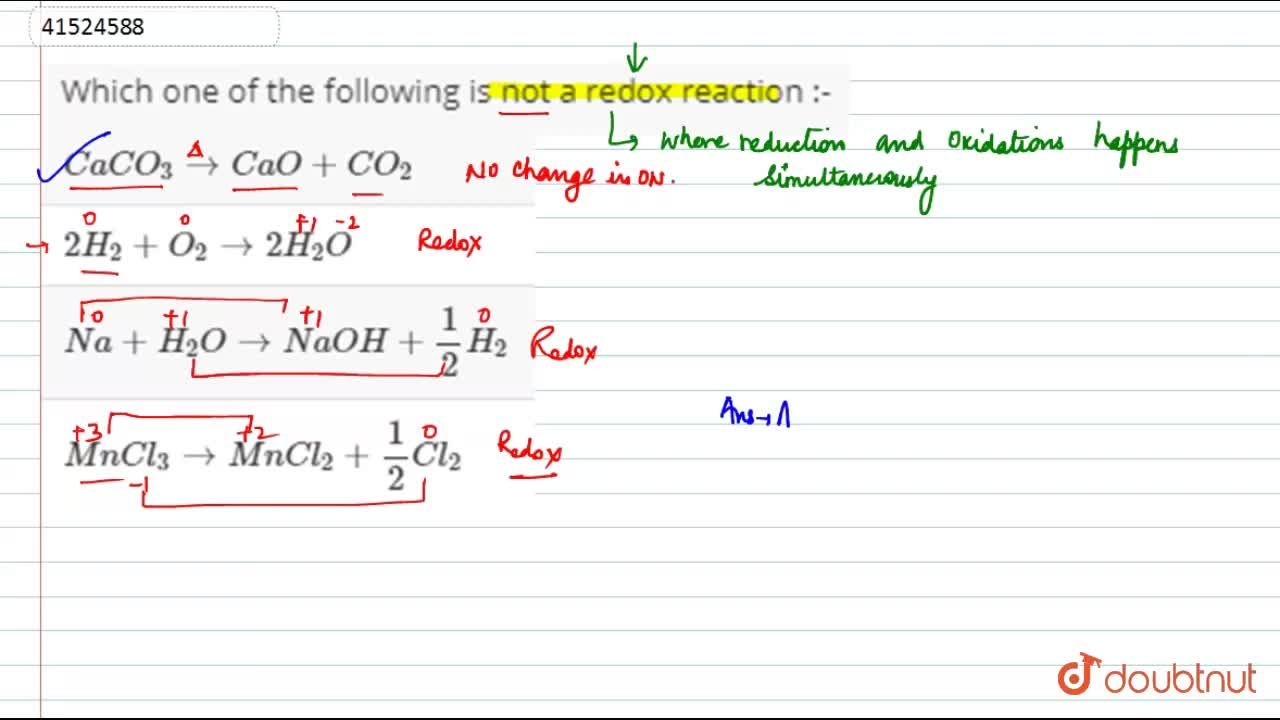 41524588
Which one of the following is not a redox reaction :-
↳ Where reduction and Oxidations happens
Simultaneously
CaCO₃ →Δ CaO + CO₂ NO change in ON.
0 0 +1 -2
→ 2H₂ + O₂ → 2H₂O Redox
0 +1 +1 0
Na + H₂O → NaOH + 1/2 H₂ Redox
Ans → A
+3 +2 0
MnCl₃ → MnCl₂ + 1/2 Cl₂ Redox
-1
doubtnut